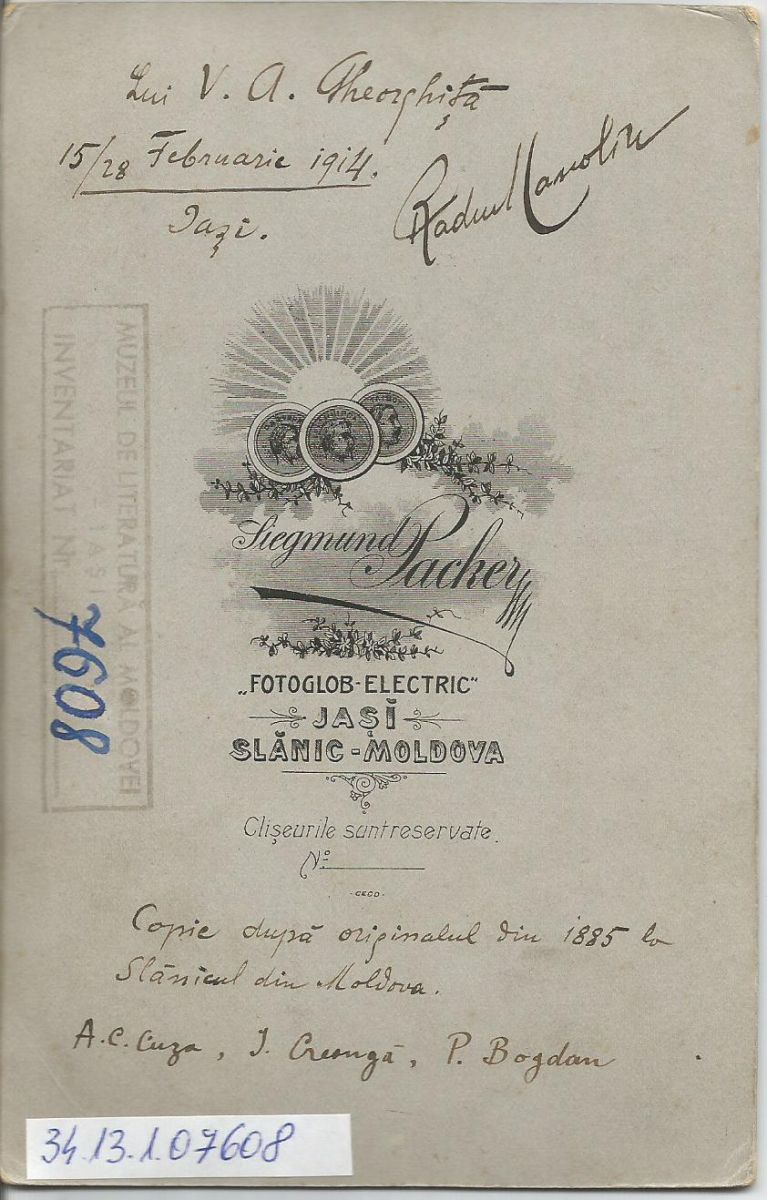 Lui V. A. Gheorghiță
15/28 Februarie 1914.
Iași.
Radu Manoliu
MUZEUL DE LITERATURĂ A MOLDOVEI
- IAȘI -
INVENTARIA Nr.
7608
Siegmund Packer
„FOTOGLOB-ELECTRIC“
JAȘĬ
SLĂNIC-MOLDOVA
Clișeurile sunt reservate.
No.
Copie după originalul din 1885 la
Slănicul din Moldova.
A.C. Cuza, I. Creangă, P. Bogdan
34.13.1.07608